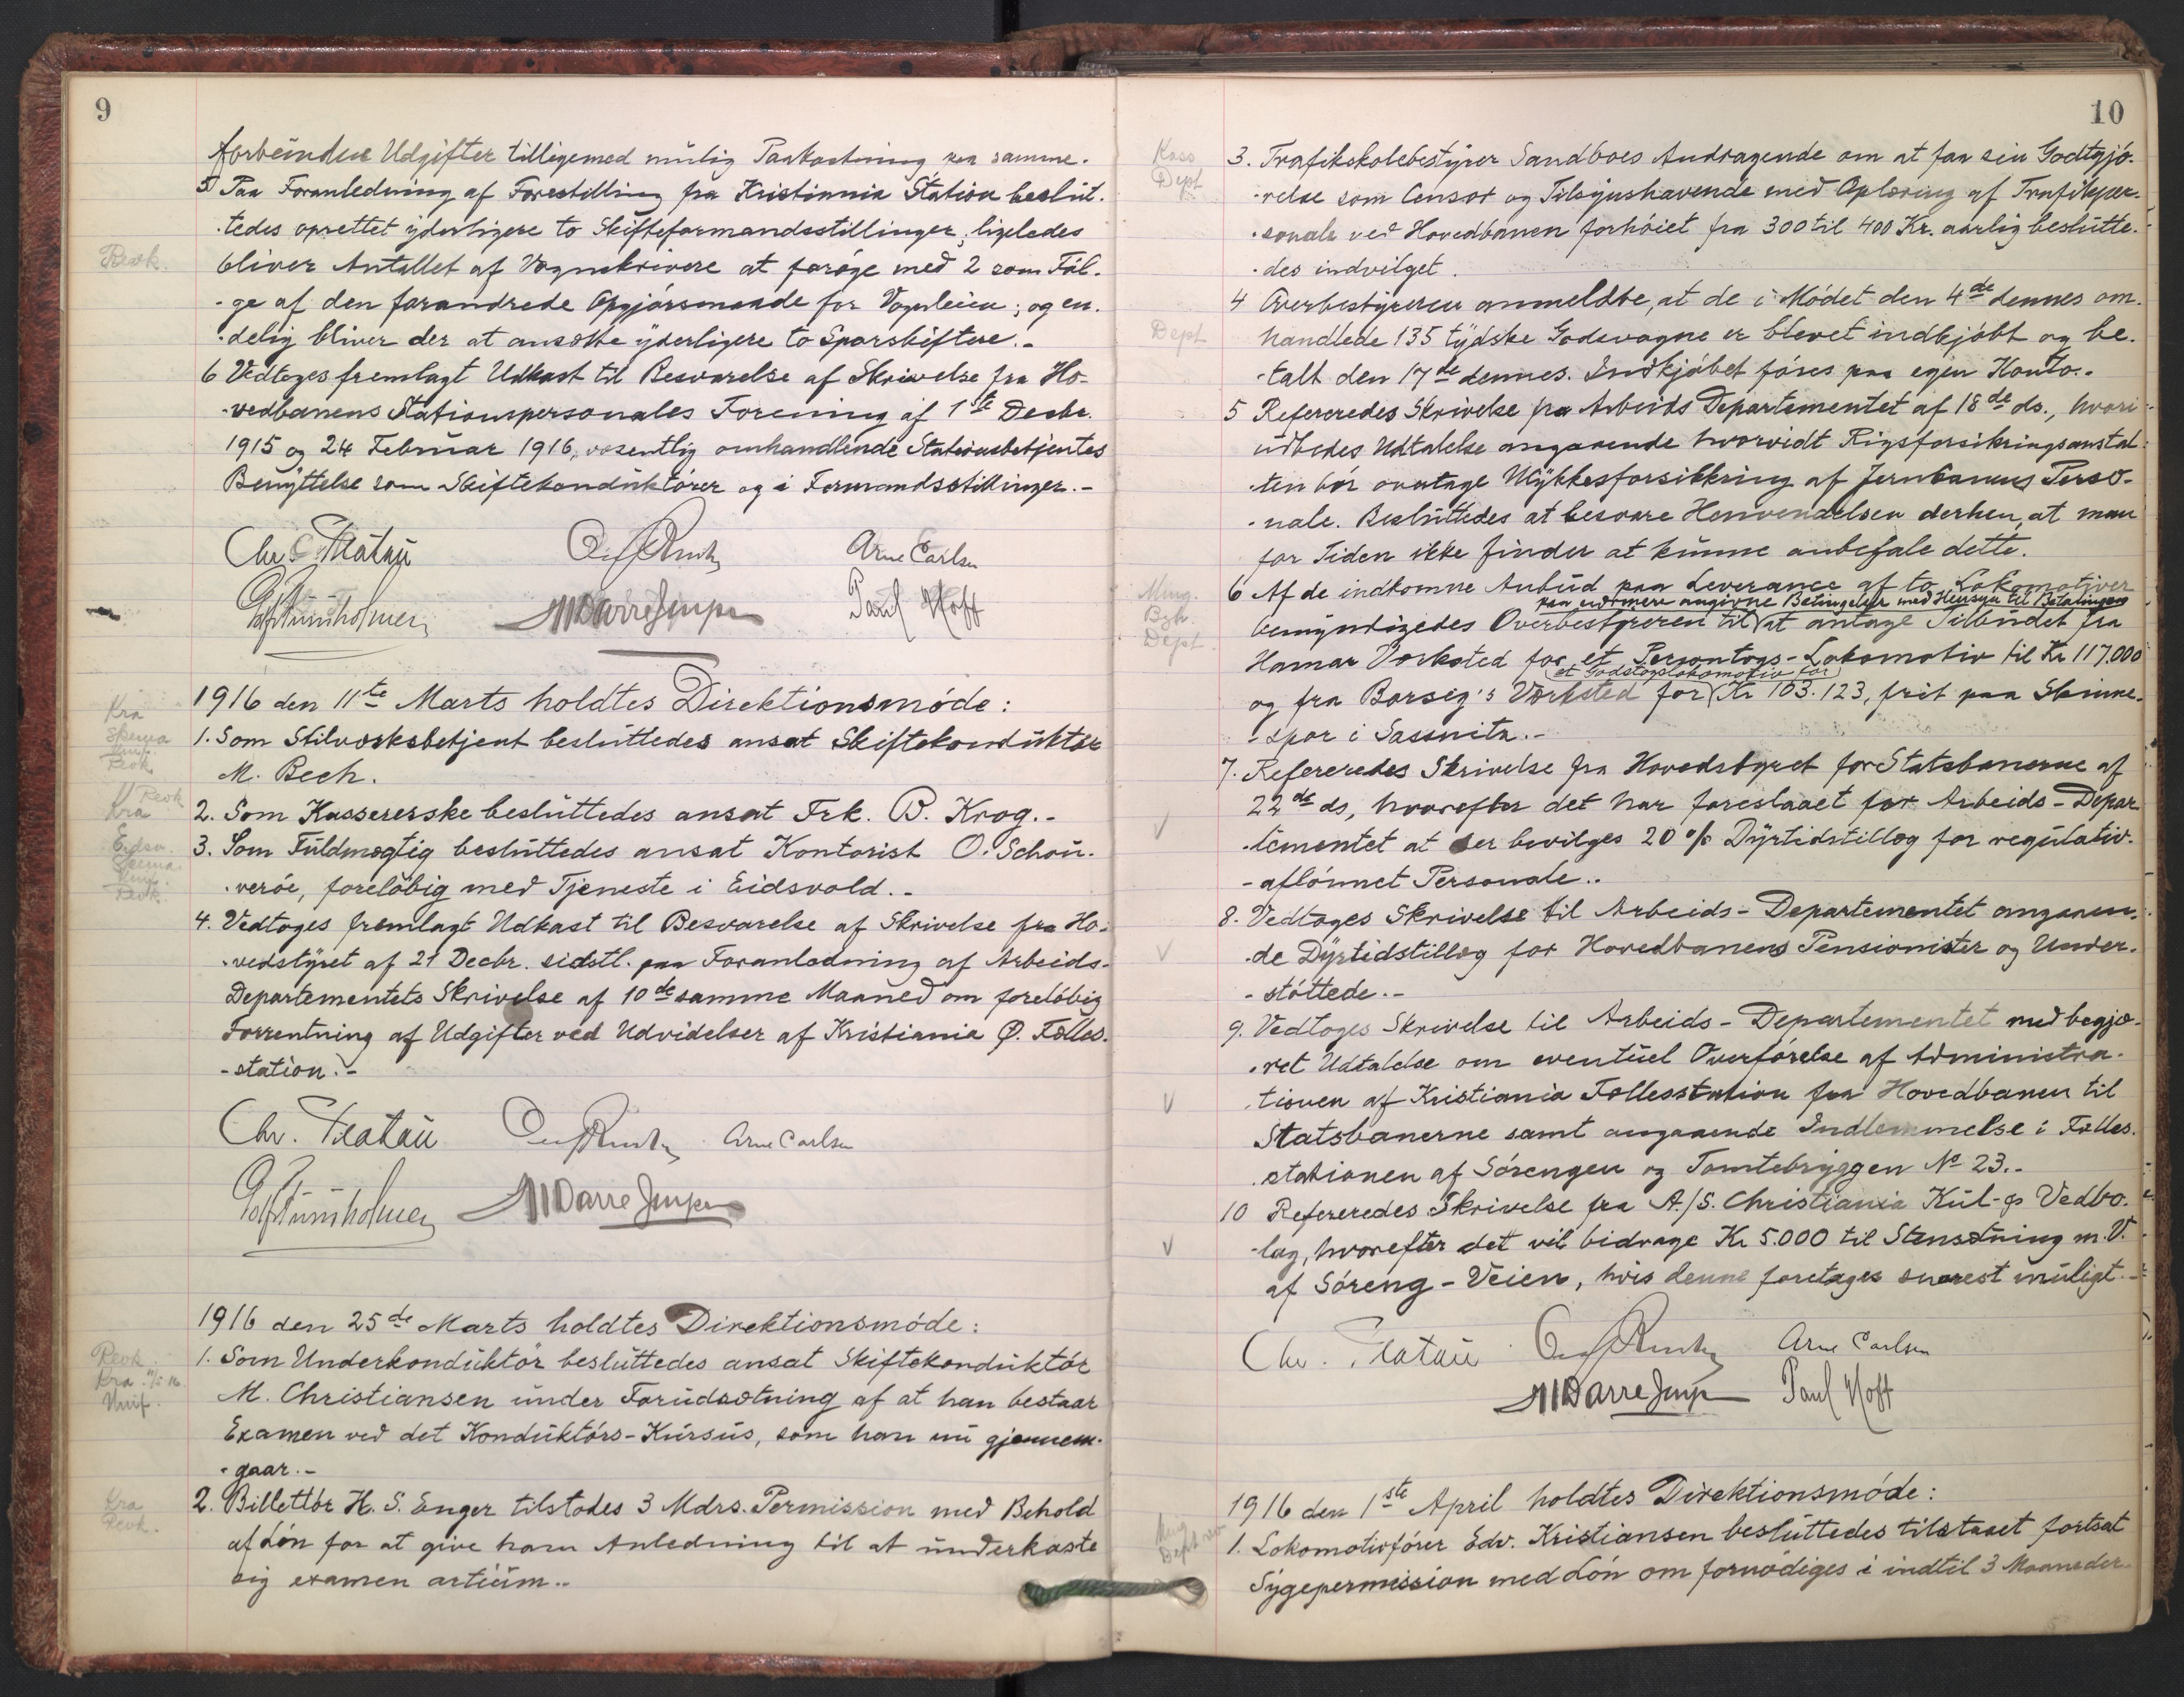 9
forbeindue Udgifter tilligemed mulig Paakostning paa samme.
5 Paa Foranledning af Forestilling fra Kristiania Station beslut-
-tedes oprettet yderligere to Skifteformandsstillinger; ligeledes
Revk.
bliver Antallet af Vognskrivere at forøge med 2 som Føl-
-ge af den forandrede Opgjørsmaade for Vognleien; og en-
-delig bliver der at ansætte yderligere to Sporskiftere.-
6 Vedtoges fremlagt Udkast til Besvarelse af Skrivelse fra Ho-
-vedbanens Stationspersonales Forening af 1ste Decbr.
1915 og 24 Februar 1916, væsentlig omhandlende Stationsbetjentes
Benyttelse som Skiftekonduktører og i Formandsstillinger.-
Chr. Platou Arne Carlsen
Paul Hoff
1916 den 11te Marts holdtes Direktionsmøde:
Kra
1. Som Stilværksbetjent besluttedes ansat Skiftekonduktør
Revk.
M. Bech.
Revk
Kra
2. Som Kassererske besluttedes ansat Frk. B. Krog.-
Eidsv.
3. Som Fuldmægtig besluttedes ansat Kontorist O. Schou-
Revk.
-verøe, foreløbig med Tjeneste i Eidsvold.-
4. Vedtoges fremlagt Udkast til Besvarelse af Skrivelse fra Ho-
-vedstyret af 21 Decbr. sidstl. paa Foranledning af Arbeids-
Departementets Skrivelse af 10de samme Maaned om foreløbig
Forrentning af Udgifter ved Udvidelser af Kristiania Ø. Fælles-
-station.-
Chr. Platou Arne Carlsen
1916 den 25de Marts holdtes Direktionsmøde:
Revk
1. Som Underkonduktør besluttedes ansat Skiftekonduktør
Kra
M. Christiansen under Forudsætning af at han bestaar
Unif.
Examen ved det Konduktørs-Kursus, som han nu gjennem-
-gaar.-
Kra
2. Billettør H. S. Enger tilstodes 3 Mdrs. Permission med Behold
Revk.
af Løn for at give ham Anledning til at underkaste
sig examen artium.-
10
Kass
3. Trafikskolebestyrer Sandboes Andragende om at faa sin Godtgjø-
Dept
-relse som Censor og Tilsynshavende med Oplæring af Trafikper-
-sonale ved Hovedbanen forhøiet fra 300 til 400 Kr. aarlig beslutte-
-des indvilget.
4 Overbestyreren anmeldte, at de i Mødet den 4de dennes om-
Dept
handlede 135 tydske Godsvogne er blevet indkjøbt og be-
-talt den 17de dennes. Indkjøbet føres paa egen Konto.-
5 Refereredes Skrivelse fra Arbeids Departementet af 18de ds., hvori
udbedes Udtalelse angaaende hvorvidt Rigsforsikringsanstal-
-ten bør overtage Ulykkesforsikkring af Jernbanens Perso-
-nale. Besluttedes at besvare Henvendelsen derhen, at man
for Tiden ikke finder at kunne anbefale dette.
Ming.
6 Af de indkomne Anbud paa Leverance af to Lokomotiver
paa nærmere angivne Betingelser med Hensyn til Betalingen
Bgh.
bemyndigedes Overbestyreren til at antage Tilbudet fra
Dept
Hamar Værksted for et Persontogs-Lokomotiv til Kr 117.000
et Godstogslokomotiv for
og fra Borsig's Værksted for Kr 103.123, frit paa Skinne-
-spor i Sassnitz.-
7. Refereredes Skrivelse fra Hovedstyret for Statsbanerne af
22de ds, hvorefter det har foreslaaet for Arbeids-Depar
-tementet at der bevilges 20 % Dyrtidstillæg for regulativ-
-aflønnet Personale.-
8. Vedtoges Skrivelse til Arbeids-Departementet angaaen-
-de Dyrtidstillæg for Hovedbanens Pensionister og Under-
-støttede.-
9. Vedtoges Skrivelse til Arbeids-Departementet med begjæ-
-ret Udtalelse om eventuel Overførelse af Administra-
-tionen af Kristiania Fællesstation fra Hovedbanen til
Statsbanerne samt angaaende Indlemmelse i Fælles-
stationen af Sørengen og Tomtebryggen No 23.-
10 Refereredes Skrivelse fra A./S. Christiania Kul- & Vedbo-
lag, hvorefter det vil bidrage Kr 5.000 til Stensætning m.V.
af Søreng-Veien, hvis denne foretages snarest muligt.-
Chr. Platou Arne Carlsen
Paul Hoff
1916 den 1ste April holdtes Direktionsmøde:
1. Lokomotivfører Edv. Kristiansen besluttedes tilstaaet fortsat
Sygepermission med Løn om fornødiges i indtil 3 Maaneder-